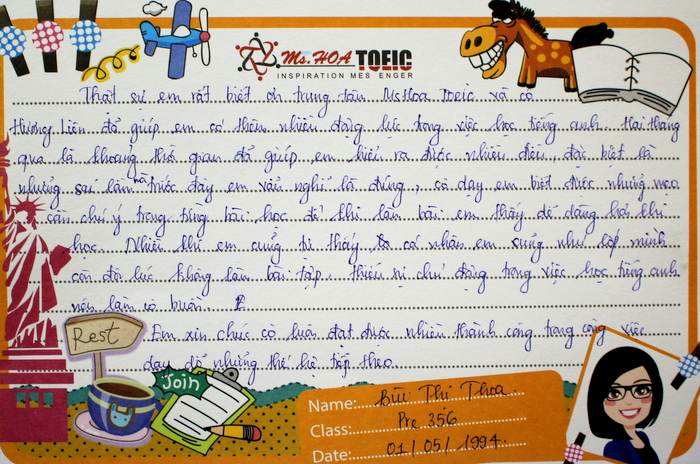 Ms.HOA TOEIC
INSPIRATION MES ENGER
Thật sự em rất biết ơn trung tâm MsHoa Toeic và cô
Hương Liên đã giúp em có thêm nhiều động lực trong việc học tiếng anh. Hai tháng
qua là khoảng thời gian đã giúp em hiểu ra được nhiều điều, đặc biệt là
những sai lầm mà trước đây em vẫn nghĩ là đúng, cô dạy em biết được những mẹo
cần chú ý trong từng bài học để khi làm bài em thấy dễ dàng hơn khi
học. Nhiều khi em cũng tự thấy cá nhân em cũng như lớp mình
còn đôi lúc không làm bài tập, thiếu sự chủ động trong việc học tiếng anh
nên làm cô buồn.
Em xin chúc cô luôn đạt được nhiều thành công trong công việc
dạy dỗ những thế hệ tiếp theo.
Rest
Join
Name: Bùi Thị Thoa.
Class: Pre 356
Date: 01/05/1994.